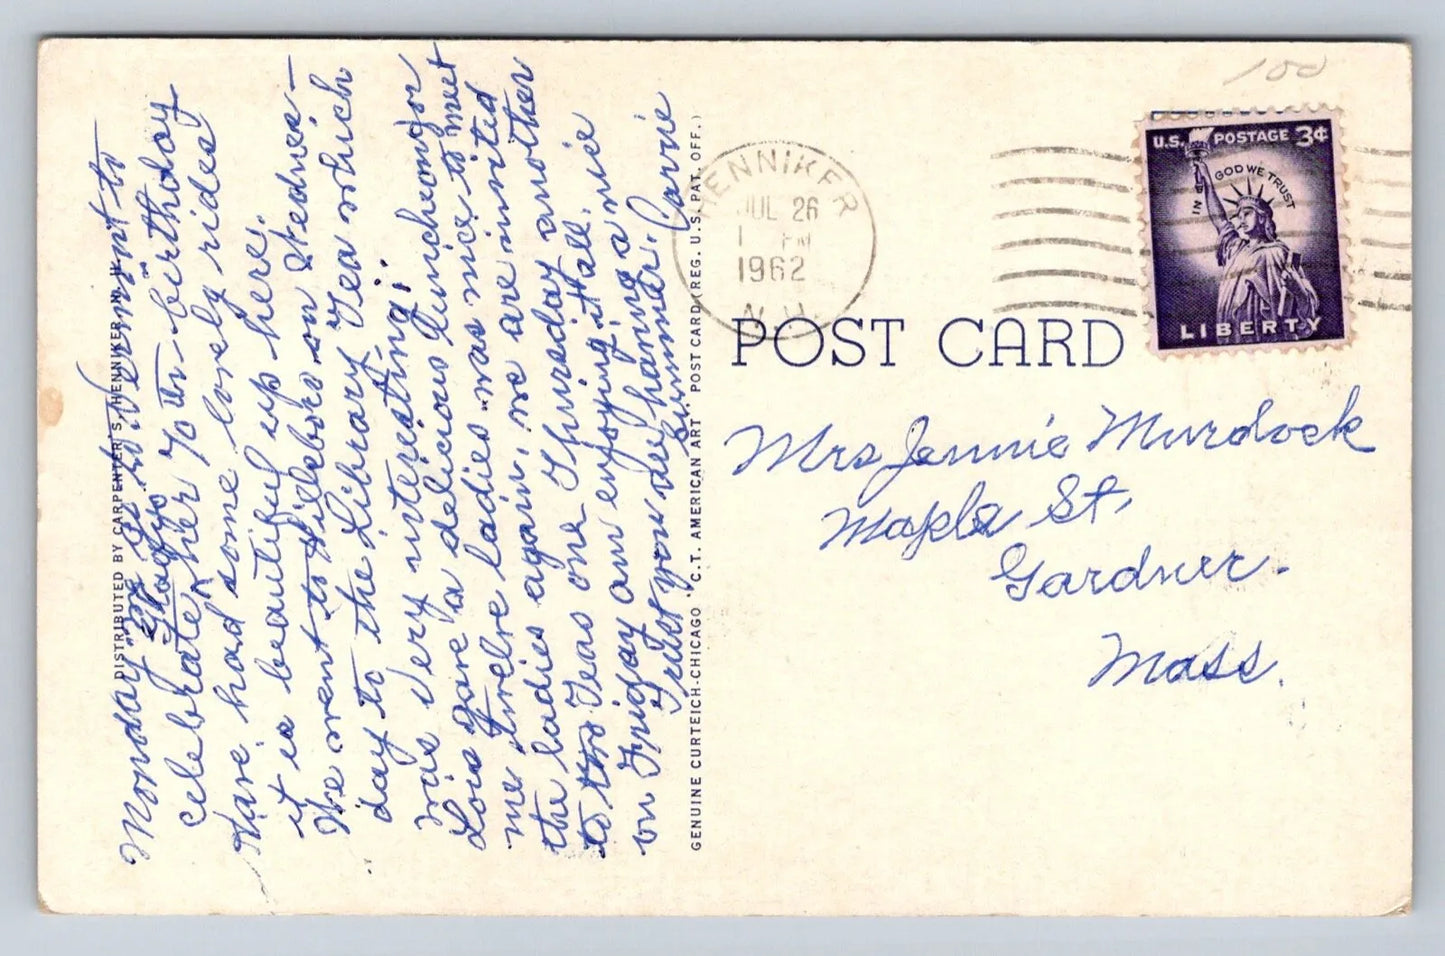 100
U.S. POSTAGE 3¢
IN GOD WE TRUST
LIBERTY
HENNIKER
JUL 26
1 PM
1962
N.H.
POST CARD
Mrs Jennie Murdock
Maple St.
Gardner.
Mass.
DISTRIBUTED BY CARPENTER'S, HENNIKER, N. H.
Monday we go to Vermont to
celebrate her 70 th birthday
Gladys
Have had some lovely rides
it is beautiful up here.
We went to Hillsboro on Wednes-
day to the Library Tea which
was very interesting.
Lois gave a delicious luncheon for
me twelve ladies was nice to meet
the ladies again, we are invited
to two Teas one Thursday another
on Friday am enjoying it all.
Trust you are having a nice
summer. Carrie
GENUINE CURTEICH-CHICAGO "C.T. AMERICAN ART" POST CARD (REG. U.S. PAT. OFF.)